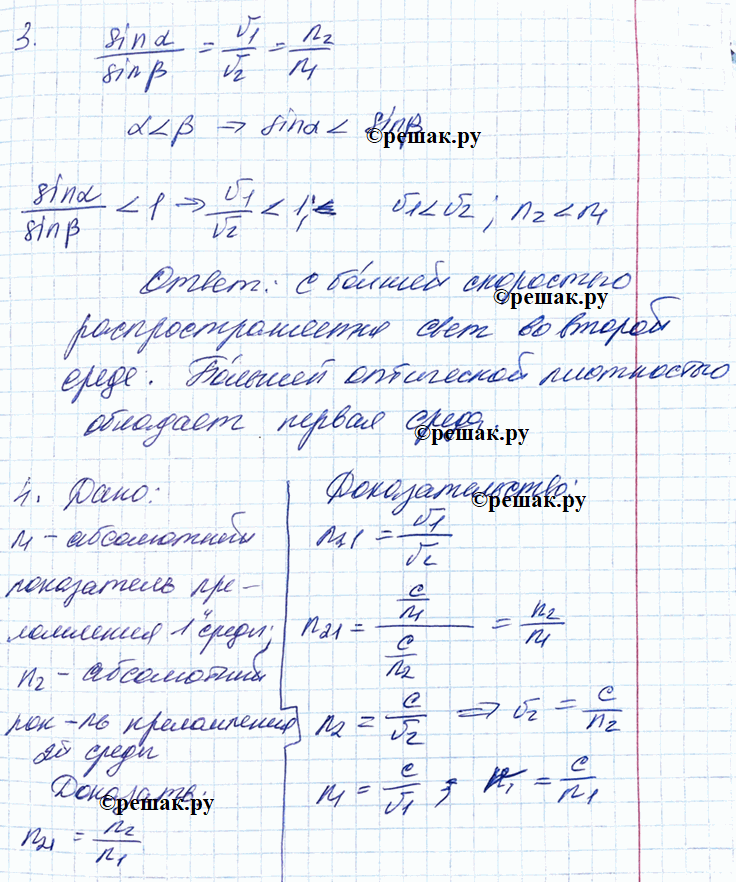 3. sinα/sinβ = v1/v2 = n2/n1
α<β ⇒ sinα < sinβ
©решак.ру
sinα/sinβ < 1 ⇒ v1/v2 < 1; v1<v2; n2<n1
Ответ: с большей скоростью
©решак.ру
распространяется свет во второй
среде. Большей оптической плотностью
обладает первая среда.
©решак.ру
4. Дано:
n1 - абсолютный
показатель пре-
ломления 1й среды;
n2 - абсолютный
пок-ль преломления
2й среды
Доказать:
©решак.ру
n21 = n2/n1
Доказательство:
©решак.ру
n21 = v1/v2
n21 = (c/n1)/(c/n2) = n2/n1
n2 = c/v2 ⇒ v2 = c/n2
n1 = c/v1 ; = c/n1